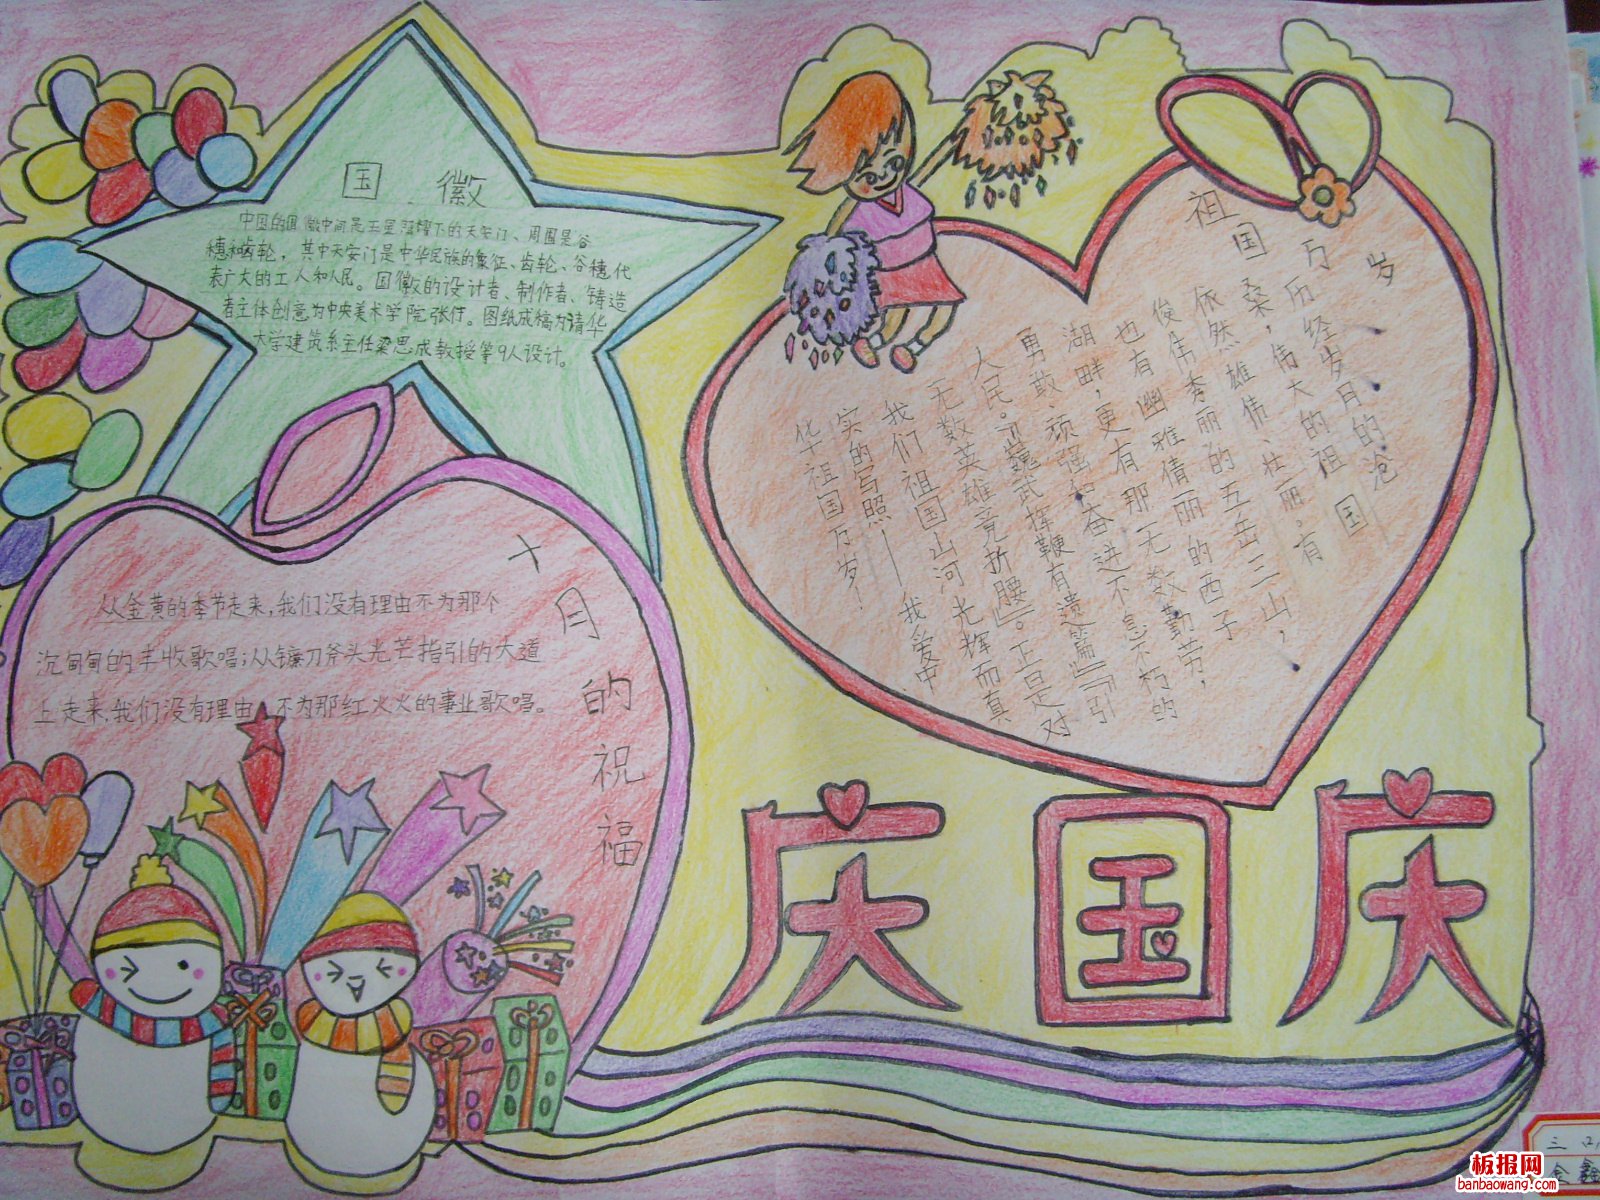 国 徽
中国的国徽中间是五星照耀下的天安门、周围是谷
穗和齿轮，其中天安门是中华民族的象征、齿轮、谷穗代
表广大的工人和人民。国徽的设计者、制作者、铸造
者主体创意为中央美术学院张仃。图纸成稿为清华
大学建筑系主任梁思成教授等9人设计。
祖国
万岁
万历经岁月的沧
桑，伟大的祖国
依然雄伟、壮丽。有
俊伟秀丽的五岳三山，
也有幽雅倩丽的西子
湖畔，更有那无数勤劳，
勇敢、顽强和奋进不息不朽的
人民。
无数英雄竞折腰』。正是对
我们祖国山河光辉而真
实的写照——我爱中
华祖国万岁！
十月的祝福
从金黄的季节走来，我们没有理由不为那个
沉甸甸的丰收歌唱；从镰刀斧头光芒指引的大道
上走来，我们没有理由不为那红火火的事业歌唱。
庆国庆
板报网
banbaowang.com